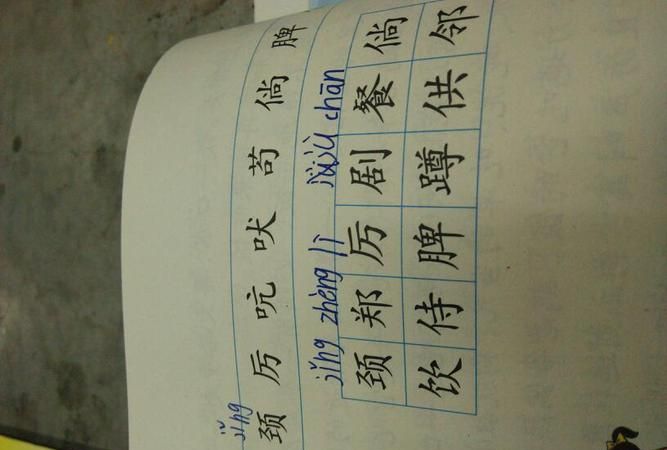 jǐng
颈 厉 吭 吠 苟 倘 脾
jǐng zhèng lì chān
颈 郑 厉 剧 餐 倘
饮 侍 脾 蹲 供 邻